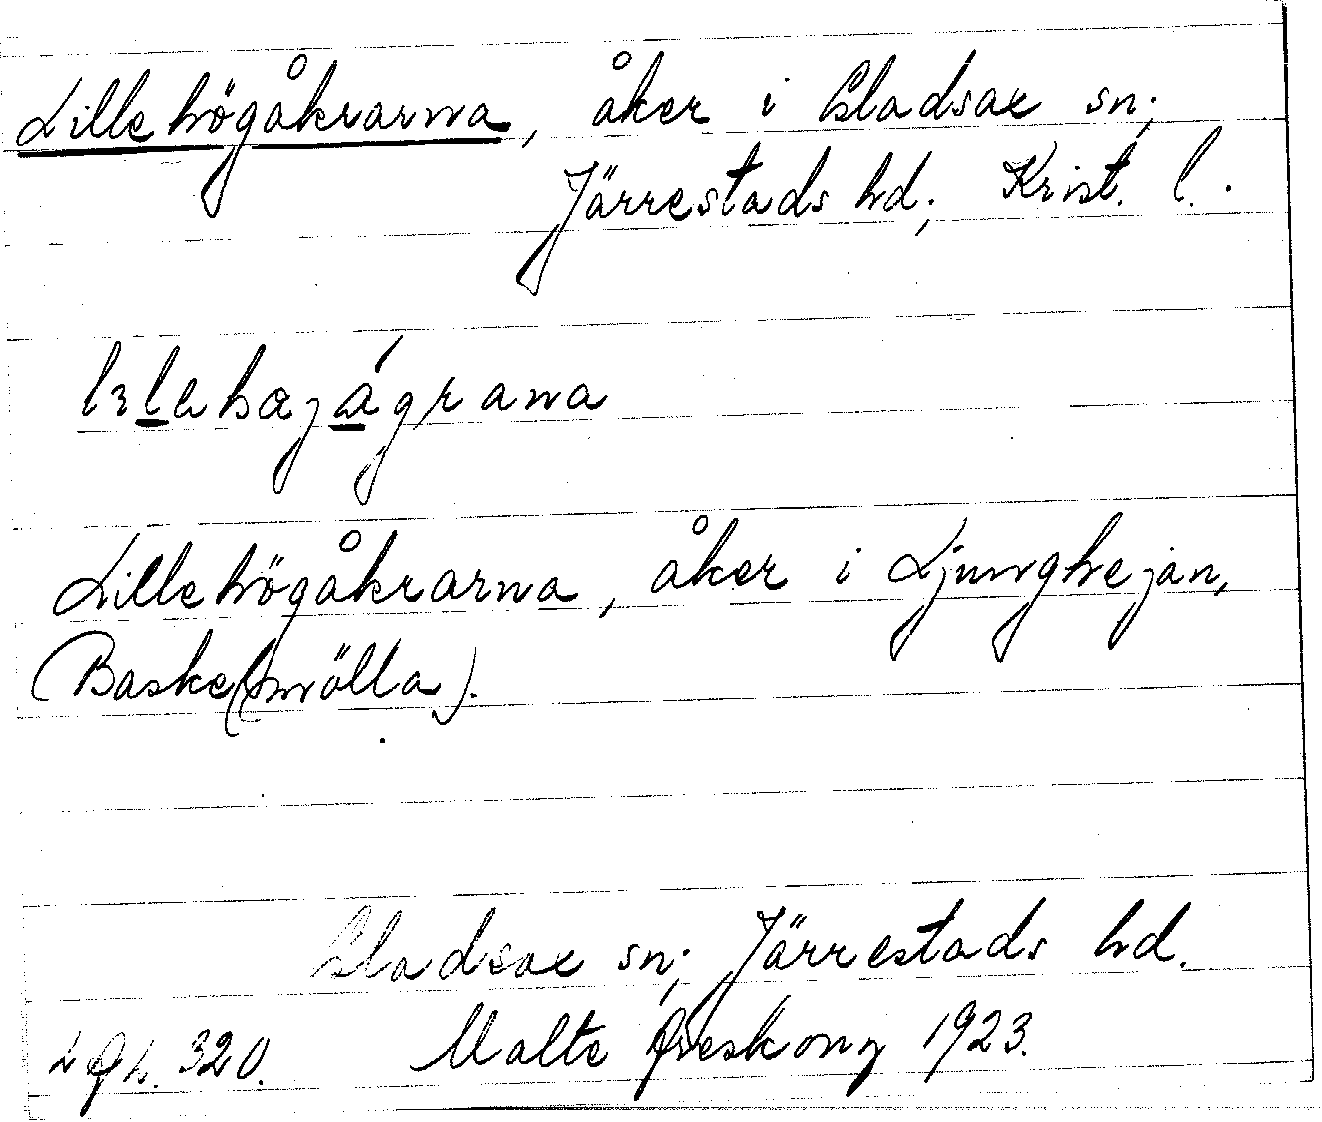 Lillehögåkrarna, åker i Gladsax sn;
Järrestads hd; Krist. l.
Lillehögåkrarna, åker i Ljunghejan,
(Baske(mölla).
Gladsax sn; Järrestads hd.
320. Malte 1923.